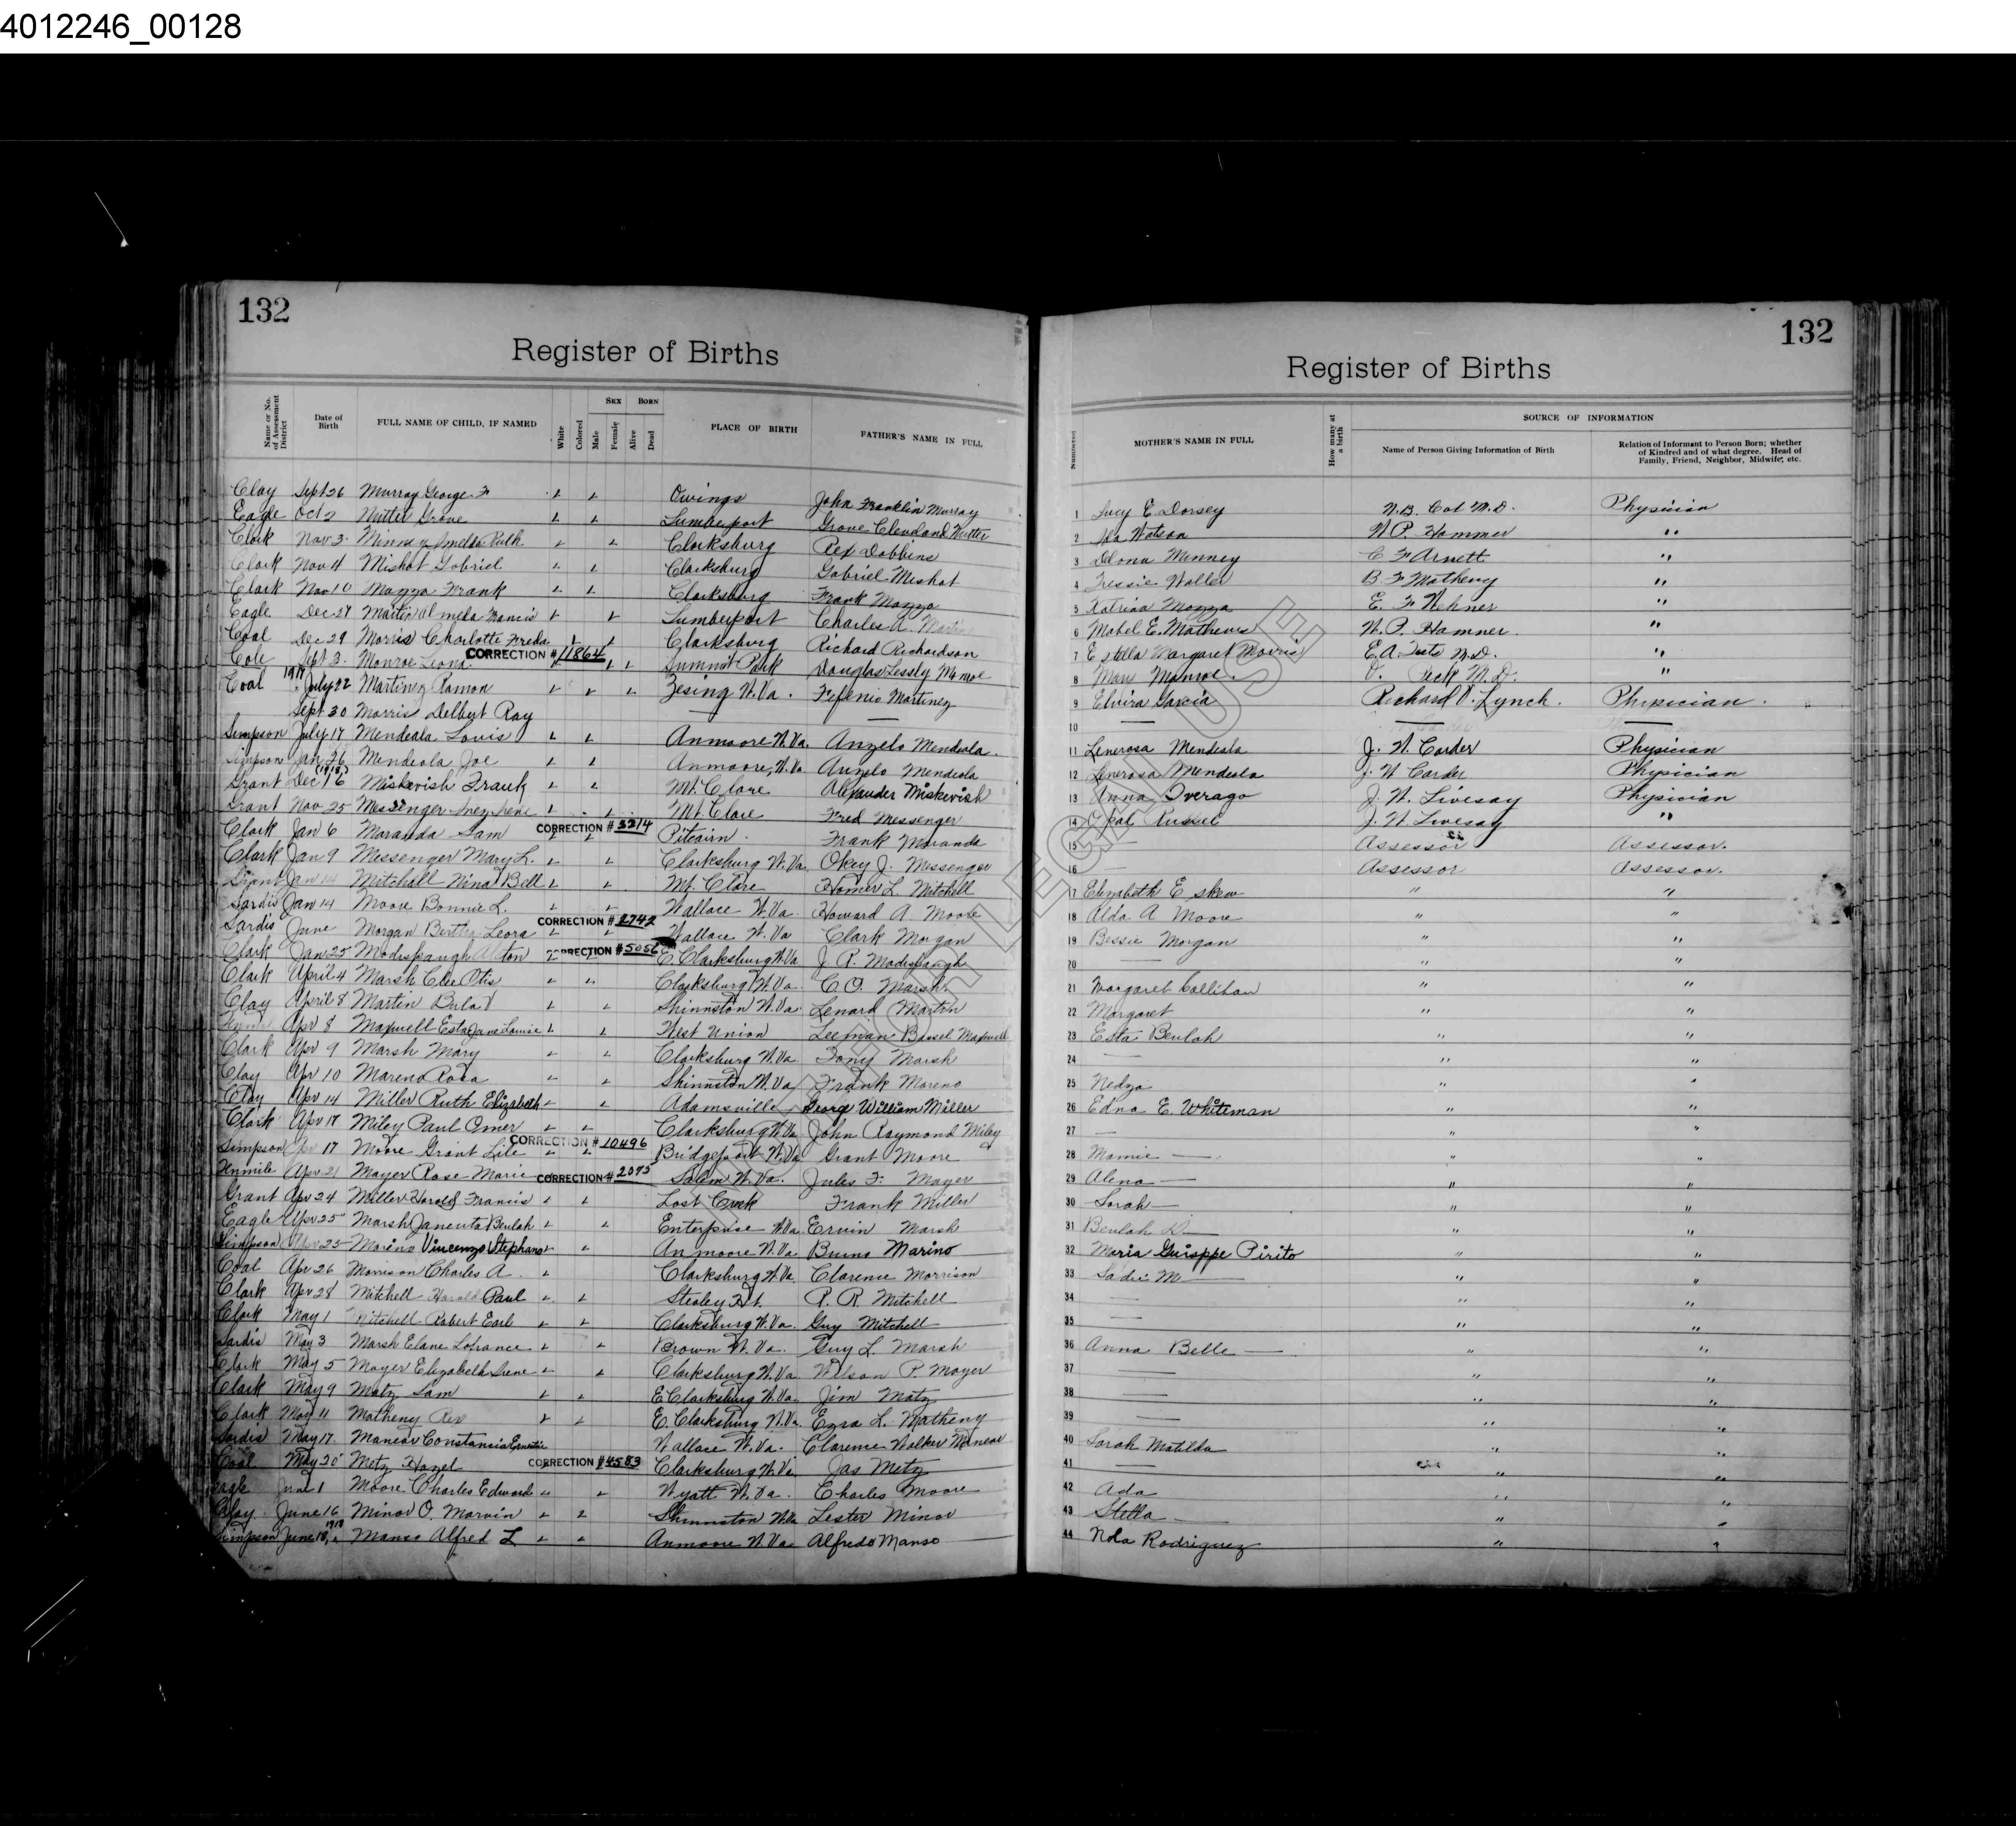 4012246_00128
132
Register of Births
Name or No. of Assessment District
Date of Birth
FULL NAME OF CHILD, IF NAMED
White
Colored
SEX
Male
Female
BORN
Alive
Dead
PLACE OF BIRTH
FATHER'S NAME IN FULL
Clay Sept 26 Murray George F Owings John Franklin Murray
Eagle Oct 2 Nutter Grove Lumberport Grove Cleveland Nutter
Clark Nov 3 Minney Ruth Clarksburg Rex Dobbins
Clark Nov 4 Mishat Gabriel Clarksburg Gabriel Mishat
Clark Nov 10 Mazza Frank Clarksburg Frank Mazza
Eagle Dec 27 Martin Almeda Francis Lumberport Charles A.
Coal Dec 29 Morris Charlotte Freda Clarksburg Richard Richardson
Coal Sept 3 Monroe Leona CORRECTION #11864 Summit Park Douglas Lessly Monroe
Coal 1917 July 22 Martinez Ramon Zesing W.Va. Martinez
Sept 30 Morris Delbert Ray
Simpson July 17 Mendeala Louis Anmoore W.Va. Angelo Mendeola
Simpson Jan 26 Mendeola Joe Anmoore, W.Va Angelo Mendeola
Grant Dec 16 (1918) Miskevish Frank Mt. Clare Alexander Miskevish
Grant Nov 25 Messenger Inez Irene Mt. Clare Fred Messenger
Clark Jan 6 Maranda Sam CORRECTION #3214 Pitcairn Frank Maranda
Clark Jan 9 Messenger Mary L. Clarksburg W.Va Okey J. Messenger
Grant Jan 14 Mitchell Nina Bell Mt. Clare Homer L. Mitchell
Sardis Jan 14 Moore Bonnie L. Wallace W.Va Howard A. Moore
Sardis June Morgan Leora CORRECTION #2742 Wallace W.Va Clark Morgan
Clark Jan 25 Modispaugh CORRECTION #5056 E. Clarksburg W.Va J. R. Modispaugh
Clark April 4 Marsh Otis Clarksburg W.Va C.O. Marsh
Clay April 8 Martin Shinnston W.Va Lenard Martin
Apr 8 Maxwell Esta Jane Louise West Union Leeman Maxwell
Clark Apr 9 Marsh Mary Clarksburg W.Va Tony Marsh
Clay Apr 10 Mareno Rosa Shinnston W.Va Frank Moreno
Clay Apr 14 Miller Ruth Elizabeth Adamsville George William Miller
Clark Apr 17 Miley Paul Omer Clarksburg W.Va John Raymond Miley
Simpson Apr 17 Moore Grant CORRECTION #10496 Bridgeport W.Va Grant Moore
Apr 21 Mayer Rose Marie CORRECTION #2075 Salem W.Va. Jules F. Mayer
Grant Apr 24 Miller Harold Francis Lost Creek Frank Miller
Eagle Apr 25 Marsh Janeuta Beulah Enterprise W.Va Ervin Marsh
Simpson Apr 25 Marino Vincenzo Stephano Anmoore W.Va Bruno Marino
Coal Apr 26 Morrison Charles A. Clarksburg W.Va Clarence Morrison
Clark Apr 28 Mitchell Harold Paul Stealey Ht. P. R. Mitchell
Clark May 1 Mitchell Robert Earl Clarksburg W.Va. Guy Mitchell
Sardis May 3 Marsh Elane Brown W.Va. Guy L. Marsh
Clark May 5 Mayer Elizabeth Irene Clarksburg W.Va Wilson P. Mayer
Clark May 9 Matz Sam E Clarksburg W.Va. Jim Matz
Clark May 11 Matheny Rex E. Clarksburg W.Va. Ezra L. Matheny
Sardis May 17 Manear Constancia Wallace W.Va. Clarence Walker Manear
Coal May 20 Metz Hazel CORRECTION #4583 Clarksburg W.Va Jas Metz
Eagle June 1 Moore Charles Edward Wyatt W.Va. Charles Moore
Clay June 16 Minor O. Marvin Shinnston W.Va Lester Minor
Simpson June 18, 1918 Manso Alfred L Anmoore W.Va Alfredo Manso
132
Register of Births
Numbered
MOTHER'S NAME IN FULL
How many at a birth
SOURCE OF INFORMATION
Name of Person Giving Information of Birth
Relation of Informant to Person Born; whether of Kindred and of what degree. Head of Family, Friend, Neighbor, Midwife, etc.
1 Lucy E Dorsey M.D. Physician
2 Ida Watson W P. Hammer "
3 Minney C F Arnett "
4 Tressie Waller B. F Matheny "
5 Katrina Mazza E. F "
6 Mabel E. Mathews W. P. Hamner. "
7 Estella Margaret Morris E.A. M.D. "
8 Mary Monroe Peck M.D. "
9 Elvira Garcia Richard V. Lynch. Physician.
10
11 Lenerosa Mendeala J. W. Carder Physician
12 Lenerosa Mendeola J. W Carder Physician
13 Anna J. W. Livesay Physician
14 Opal Russel J. W. Livesay "
15 Assessor Assessor.
16 Assessor Assessor.
17 Elizabeth E skew " "
18 Alda A Moore " "
19 Bessie Morgan " "
20 " "
21 Margaret Callihan " "
22 Margaret " "
23 Esta Beulah " "
24 " "
25 Nedza " "
26 Edna E. Whiteman " "
27 " "
28 Mamie " "
29 Alena " "
30 Sarah " "
31 Beulah D " "
32 Maria Guisppe Pirito " "
33 Sadie M " "
34 " "
35 " "
36 Anna Belle " "
37 " "
38 " "
39 " "
40 Sarah Matilda " "
41 " "
42 Ada " "
43 Stella " "
44 Nola Rodriguez " "
NOT FOR LEGAL USE